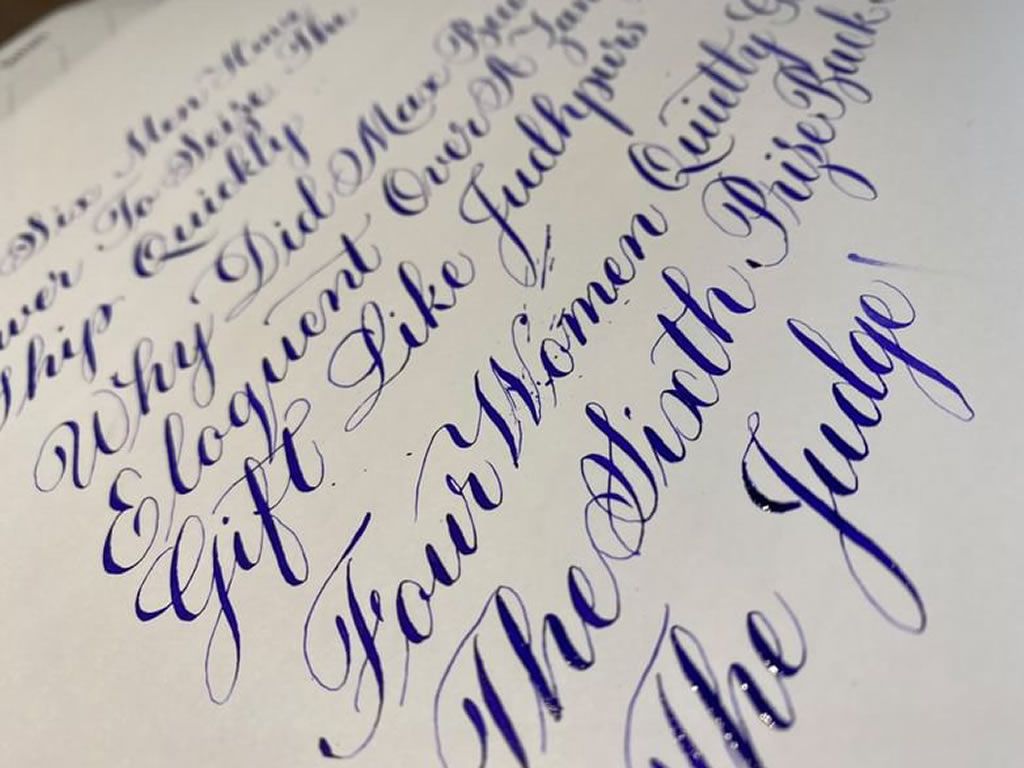 Six Men
To Seize The
Ship Quickly
Why Did Max
Eloquent Over A
Gift Like Judhpurs
Four Women
The Sixth Prize Back
The Judge